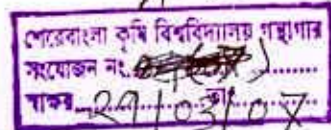 শেরেবাংলা কৃষি বিশ্ববিদ্যালয় গন্থাগার
সংযোজন নং
স্বাক্ষর 29/03/07